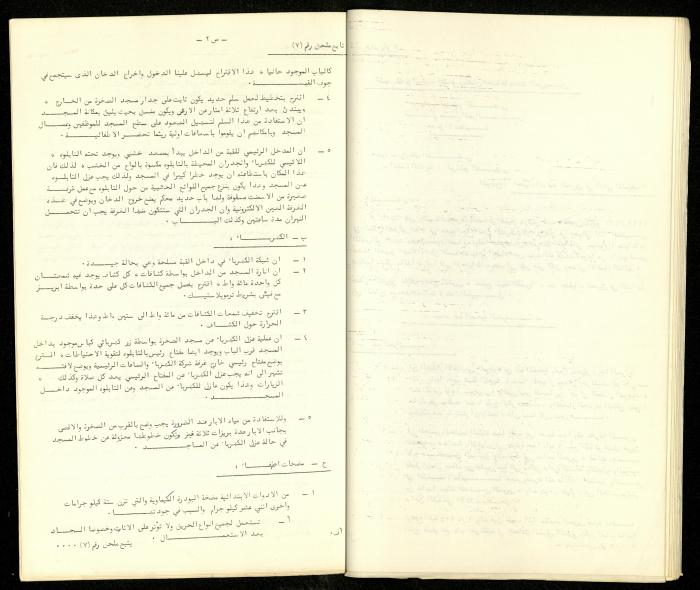 — ص ٢ —
تابع ملحق رقم (٧)
كالباب الموجود حاليا ٠ هذا الاقتراح ليسهل علينا الدخول واخراج الدخان الذى سيتجمع في
جوف القبة ٠
٤ — اقترح بتخطيط لعمل سلم حديد يكون ثابت على جدار مسجد الصخرة من الخارج ٠
ويبتدئ بعد ارتفاع ثلاثة امتار عن الارض ويكون مفصل بحيث يليق بمكانة المسجد
ان الاستفادة من هذا السلم لتسهيل الصعود على سطح المسجد للموظفين وعمال
المسجد وبامكانهم ان يقوموا باسعافات اولية ريثما تحضر الاطفائية ٠
٥ — ان المدخل الرئيسي للقبة من الداخل يبدأ بمصعد خشبي ويوجد تحته التابلوه
الرئيسي للكهرباء والجدران المحيطة بالتابلوه مكسوة بالواح من الخشب ٠ لذلك فان
هذا المكان باستطاعته ان يوجد خطرا كبيرا في المسجد ولذلك يجب عزل التابلوه
عن المسجد وهذا يكون بنزع جميع اللوائح الخشبية من حول التابلوه مع عمل غرفة
صغيرة من الاسمنت مسقوفة ولها باب حديد محكم يمنع خروج الدخان ويوضع في هذه
الغرفة العين الالكترونية وان الجدران التي ستتكون منها الغرفة يجب ان تتحمل
النيران مدة ساعتين وكذلك الباب ٠
ب — الكهرباء :
١ — ان شبكة الكهرباء في داخل القبة مسلحة وهي بحالة جيدة ٠
٢ — ان انارة المسجد من الداخل بواسطة كشافات ٠ كل كشاف يوجد فيه شمعتان
كل واحدة مائة واط ٠ اقترح بفصل جميع الكشافات كل على حدة بواسطة ابريز
مع فيش بشريط ترموبلاستيك ٠
٣ — اقترح تخفيف شمعات الكشافات من مائة واط الى ستين واط وهذا يخفف درجة
الحرارة حول الكشاف ٠
٤ — ان عملية عزل الكهرباء عن مسجد الصخرة بواسطة زر كهربائي كباس موجود بداخل
المسجد قرب الباب ويوجد ايضا مفتاح رئيسي بالتابلوه لتقوية الاحتياطات ٠ اقترح
بوضع مفتاح رئيسي خارج غرفة شركة الكهرباء والساعات الرئيسية ويوضع لافتة
تشير الى انه يجب عزل الكهرباء عن المفتاح الرئيسي بعد كل صلاة وكذلك ٠
الزيارات وهذا يكون عازلى للكهرباء عن المسجد وعن التابلوه الموجود داخل
المسجد ٠
٥ — وللاستفادة من مياه الابار عند الضرورة يجب وضع بالقرب من الصخرة والاقصى
بجانب الابار عدة بريزات ثلاثة فيز وتكون خطوطها معزولة عن خطوط المسجد
في حالة عزل الكهرباء عن المساجد ٠
ج — مضخات اطفاء :
١ — من الادوات الابتدائية مضخة البودرة الكيماوية والتي تزن ستة كيلو جرامات
واخرى اثني عشر كيلو جرام والسبب في جودتها ٠
أ — تستعمل لجميع انواع الحريق ولا تؤثر على الاثاث وخصوصا السجاد
بعد الاستعمال ٠
يتبع ملحق رقم (٧) ٠٠٠٠